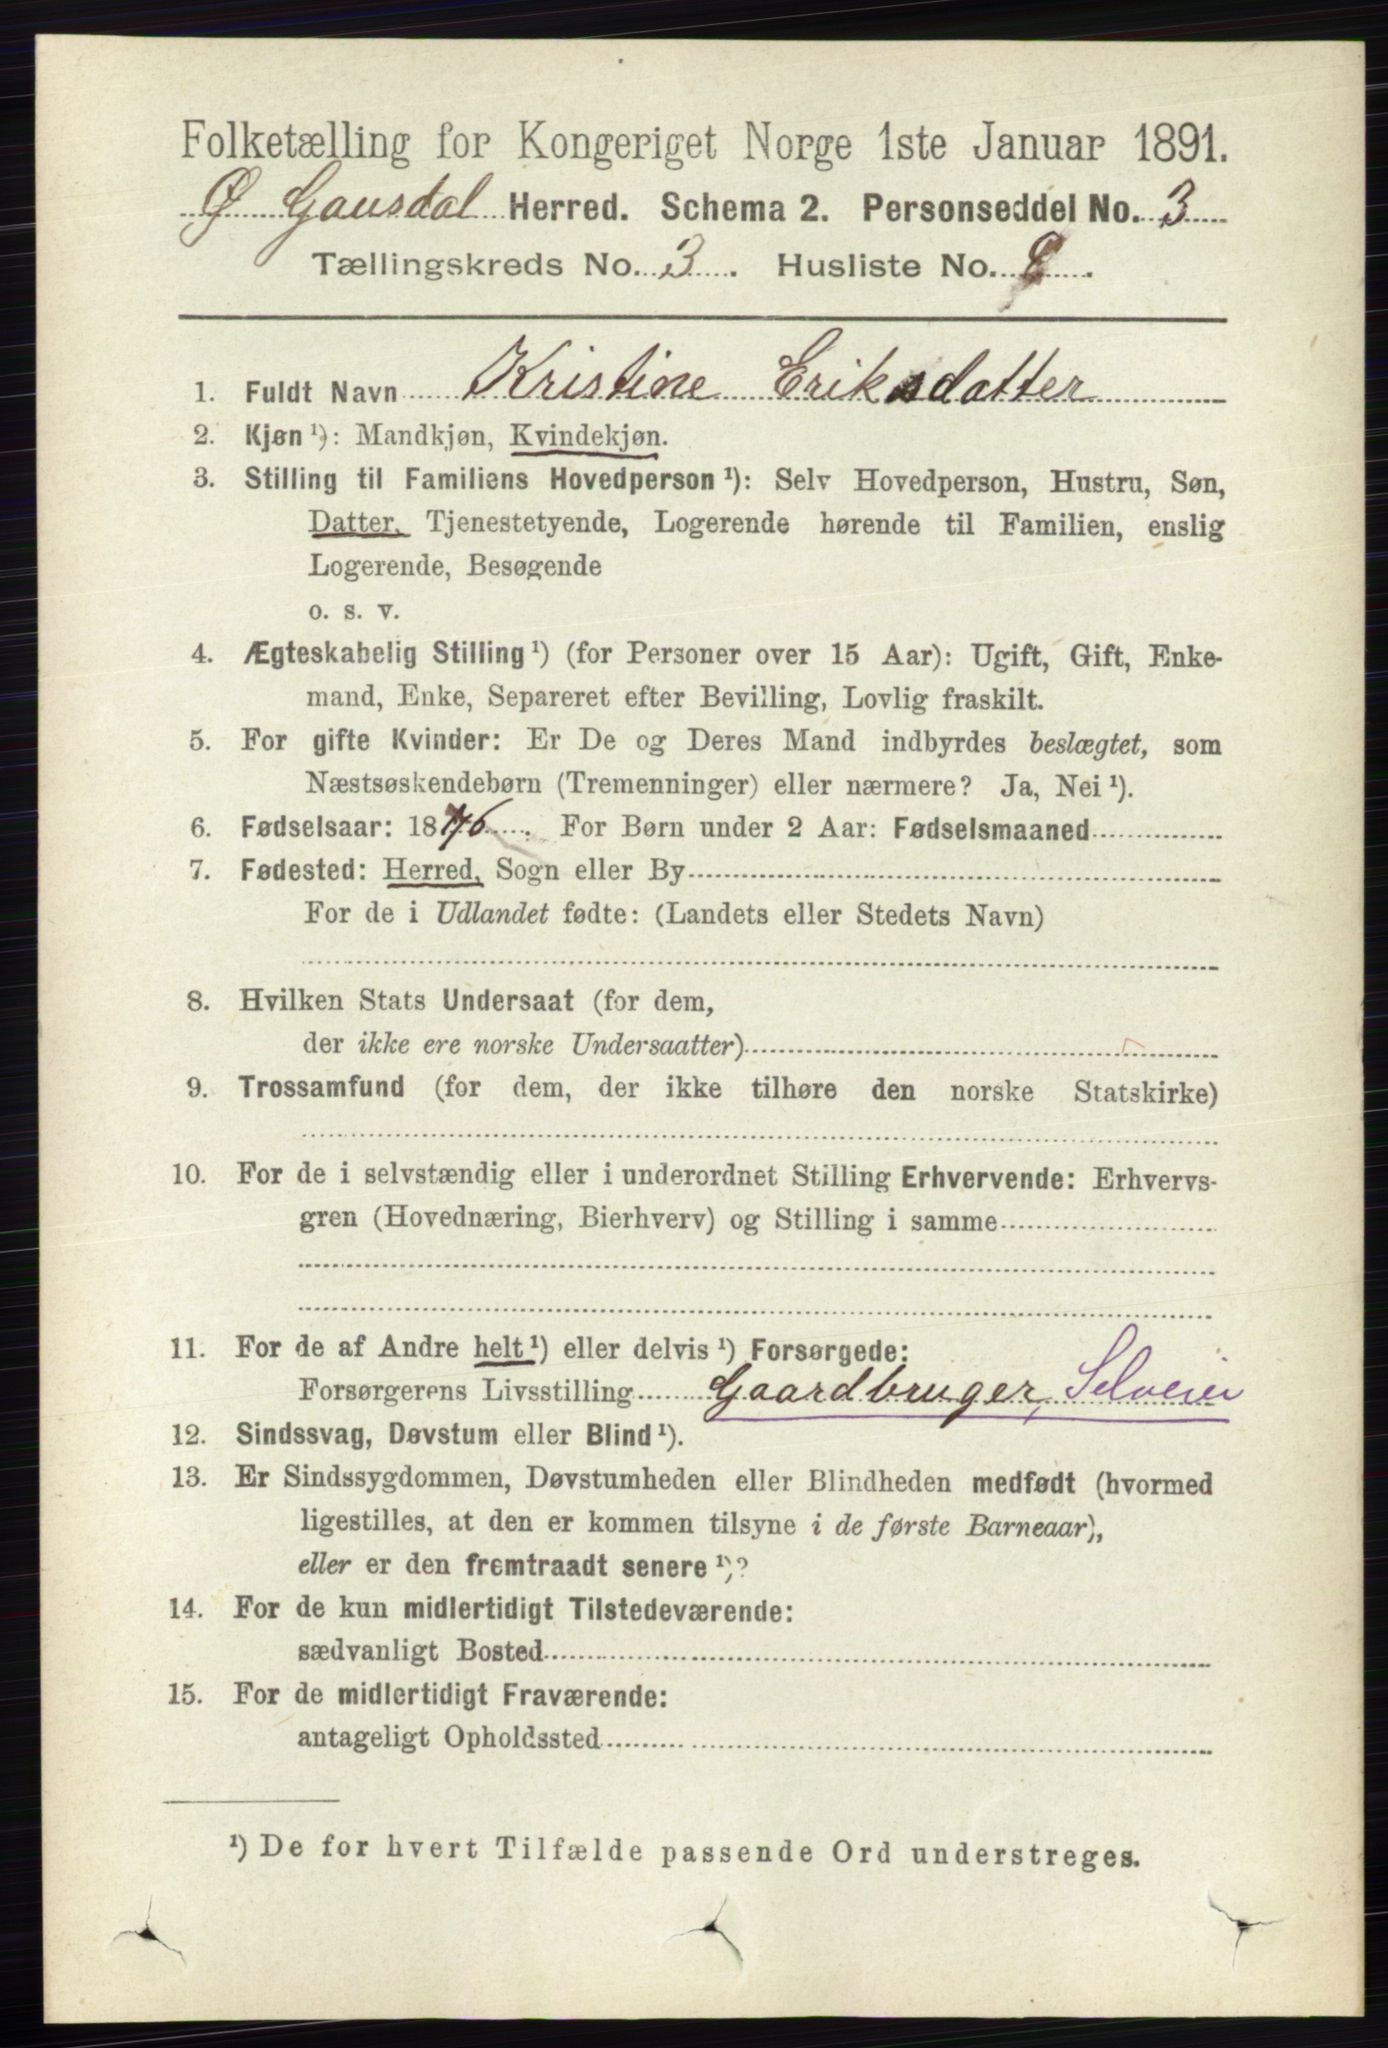 Folketælling for Kongeriget Norge 1ste Januar 1891.
Ø Gausdal Herred. Schema 2. Personseddel No. 3
Tællingskreds No. 3. Husliste No.
1. Fuldt Navn Kristine Eriksdatter
2. Kjøn ¹): Mandkjøn, Kvindekjøn.
3. Stilling til Familiens Hovedperson ¹): Selv Hovedperson, Hustru, Søn,
Datter, Tjenestetyende, Logerende hørende til Familien, enslig
Logerende, Besøgende
o. s. v.
4. Ægteskabelig Stilling ¹) (for Personer over 15 Aar): Ugift, Gift, Enke-
mand, Enke, Separeret efter Bevilling, Lovlig fraskilt.
5. For gifte Kvinder: Er De og Deres Mand indbyrdes beslægtet, som
Næstsøskendebørn (Tremenninger) eller nærmere? Ja, Nei ¹).
6. Fødselsaar: 1876. For Børn under 2 Aar: Fødselsmaaned
7. Fødested: Herred, Sogn eller By
For de i Udlandet fødte: (Landets eller Stedets Navn)
8. Hvilken Stats Undersaat (for dem,
der ikke ere norske Undersaatter)
9. Trossamfund (for dem, der ikke tilhøre den norske Statskirke)
10. For de i selvstændig eller i underordnet Stilling Erhvervende: Erhvervs-
gren (Hovednæring, Bierhverv) og Stilling i samme
11. For de af Andre helt ¹) eller delvis ¹) Forsørgede:
Forsørgerens Livsstilling Gaardbruger, Selveier
12. Sindssvag, Døvstum eller Blind ¹).
13. Er Sindssygdommen, Døvstumheden eller Blindheden medfødt (hvormed
ligestilles, at den er kommen tilsyne i de første Barneaar),
eller er den fremtraadt senere ¹)?
14. For de kun midlertidigt Tilstedeværende:
sædvanligt Bosted
15. For de midlertidigt Fraværende:
antageligt Opholdssted
¹) De for hvert Tilfælde passende Ord understreges.